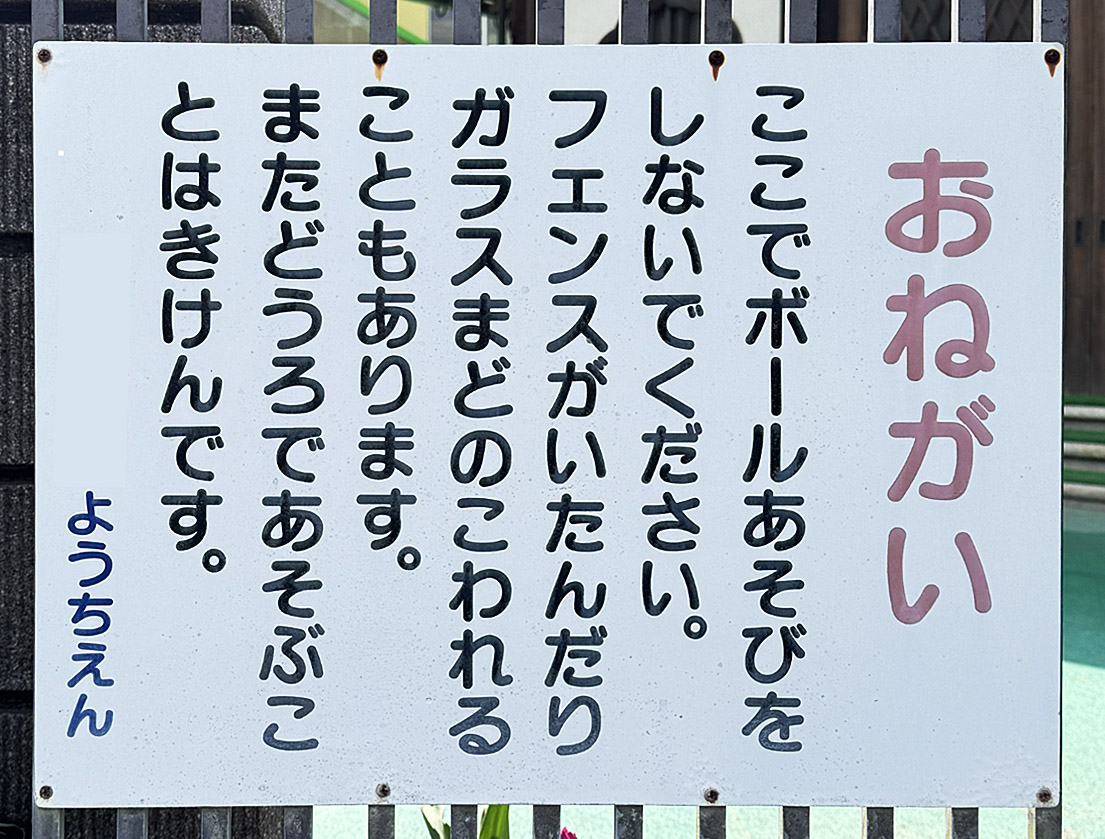 おねがい
ここでボールあそびを
しないでください。
フェンスがいたんだり
ガラスまどのこわれる
こともあります。
またどうろであそぶこ
とはきけんです。
ようちえん